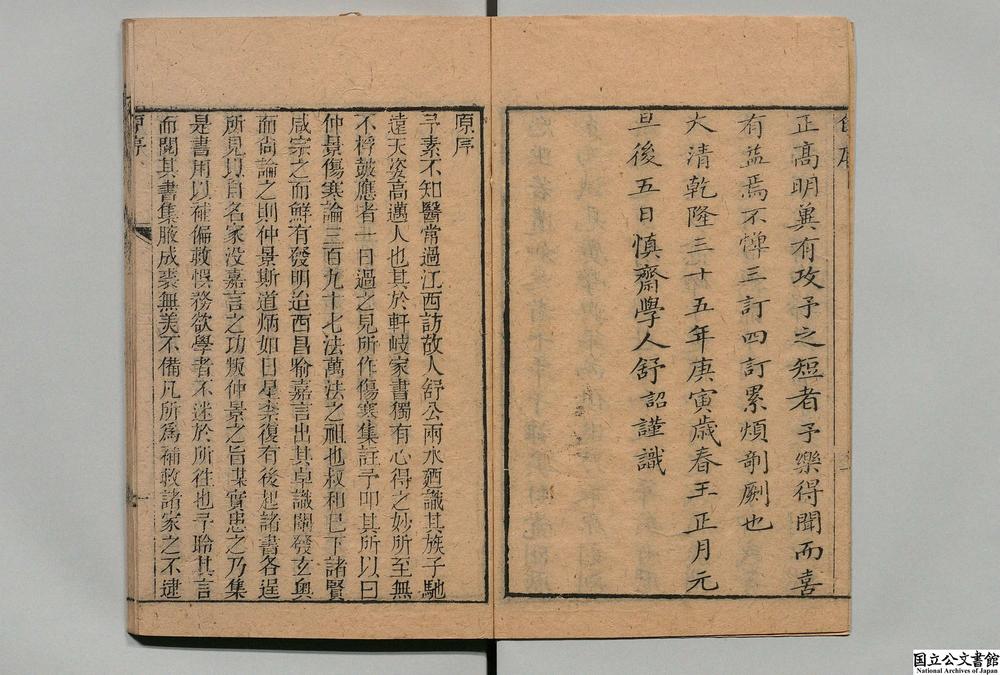 正高明兾有攻予之短者予樂得聞而喜
有益焉不憚三訂四訂累煩剞劂也
大清乾隆三十五年庚寅歳春王正月元
旦後五日慎齋學人舒詔謹識
原序
予素不知醫常過江西訪故人舒公兩水廼識其族子馳
遠天姿高邁人也其於軒岐家書獨有心得之妙所至無
不桴皷應者一日過之見所作傷寒集註予叩其所以曰
仲景傷寒論三百九十七法萬法之祖也叔和已下諸賢
咸宗之而鮮有發明迨西昌喻嘉言出其卓識闡發玄奥
而尚論之則仲景斯道炳如日星柰復有後起諸書各逞
所見以自名家没嘉言之功叛仲景之旨謀實患之乃集
是書用以補偏救悞務欲學者不迷於所徃也予聆其言
而閲其書集腋成裘無美不備凡所爲補救諸家之不逮
原序
一
国立公文書館
National Archives of Japan